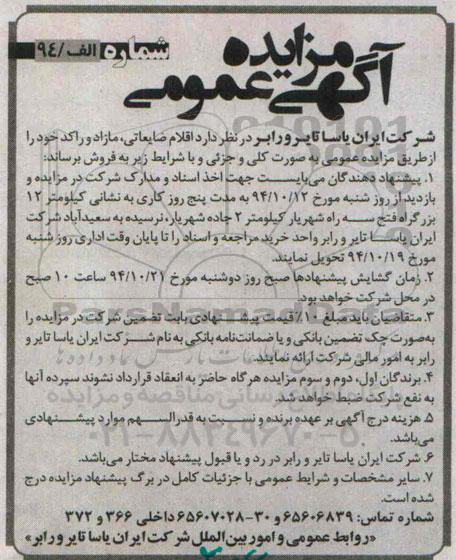 شماره الف/۹۴
آگهی مزایده عمومی
شرکت ایران یاسا تایر و رابر در نظر دارد اقلام ضایعاتی، مازاد و راکد خود را
از طریق مزایده عمومی به صورت کلی و جزئی و با شرایط زیر به فروش برساند:
۱. پیشنهاد دهندگان می‌بایست جهت اخذ اسناد و مدارک شرکت در مزایده و
بازدید از روز شنبه مورخ ۹۴/۱۰/۱۲ به مدت پنج روز کاری به نشانی کیلومتر ۱۲
بزرگراه فتح سه راه شهریار کیلومتر ۲ جاده شهریار، نرسیده به سعیدآباد شرکت
ایران یاسا تایر و رابر واحد خرید مراجعه و اسناد را تا پایان وقت اداری روز شنبه
مورخ ۹۴/۱۰/۱۹ تحویل نمایند.
۲. زمان گشایش پیشنهادها صبح روز دوشنبه مورخ ۹۴/۱۰/۲۱ ساعت ۱۰ صبح
در محل شرکت خواهد بود.
۳. متقاضیان باید مبلغ ۱۰٪ قیمت پیشنهادی بابت تضمین شرکت در مزایده را
به‌صورت چک تضمین بانکی و یا ضمانت‌نامه بانکی به نام شرکت ایران یاسا تایر و
رابر به امور مالی شرکت ارائه نمایند.
۴. برندگان اول، دوم و سوم مزایده هرگاه حاضر به انعقاد قرارداد نشوند سپرده آنها
به نفع شرکت ضبط خواهد شد.
۵. هزینه درج آگهی بر عهده برنده و نسبت به قدرالسهم موارد پیشنهادی
می‌باشد.
۶. شرکت ایران یاسا تایر و رابر در رد و یا قبول پیشنهاد مختار می‌باشد.
۷. سایر مشخصات و شرایط عمومی با جزئیات کامل در برگ پیشنهاد مزایده درج
شده است.
شماره تماس: ۶۵۶۰۶۸۳۹ و ۳۰-۶۵۶۰۷۰۲۸ داخلی ۳۶۶ و ۳۷۲
«روابط عمومی و امور بین‌الملل شرکت ایران یاسا تایر و رابر»
۰۲۱-۸۸۳۴۹۶۷۰-۵